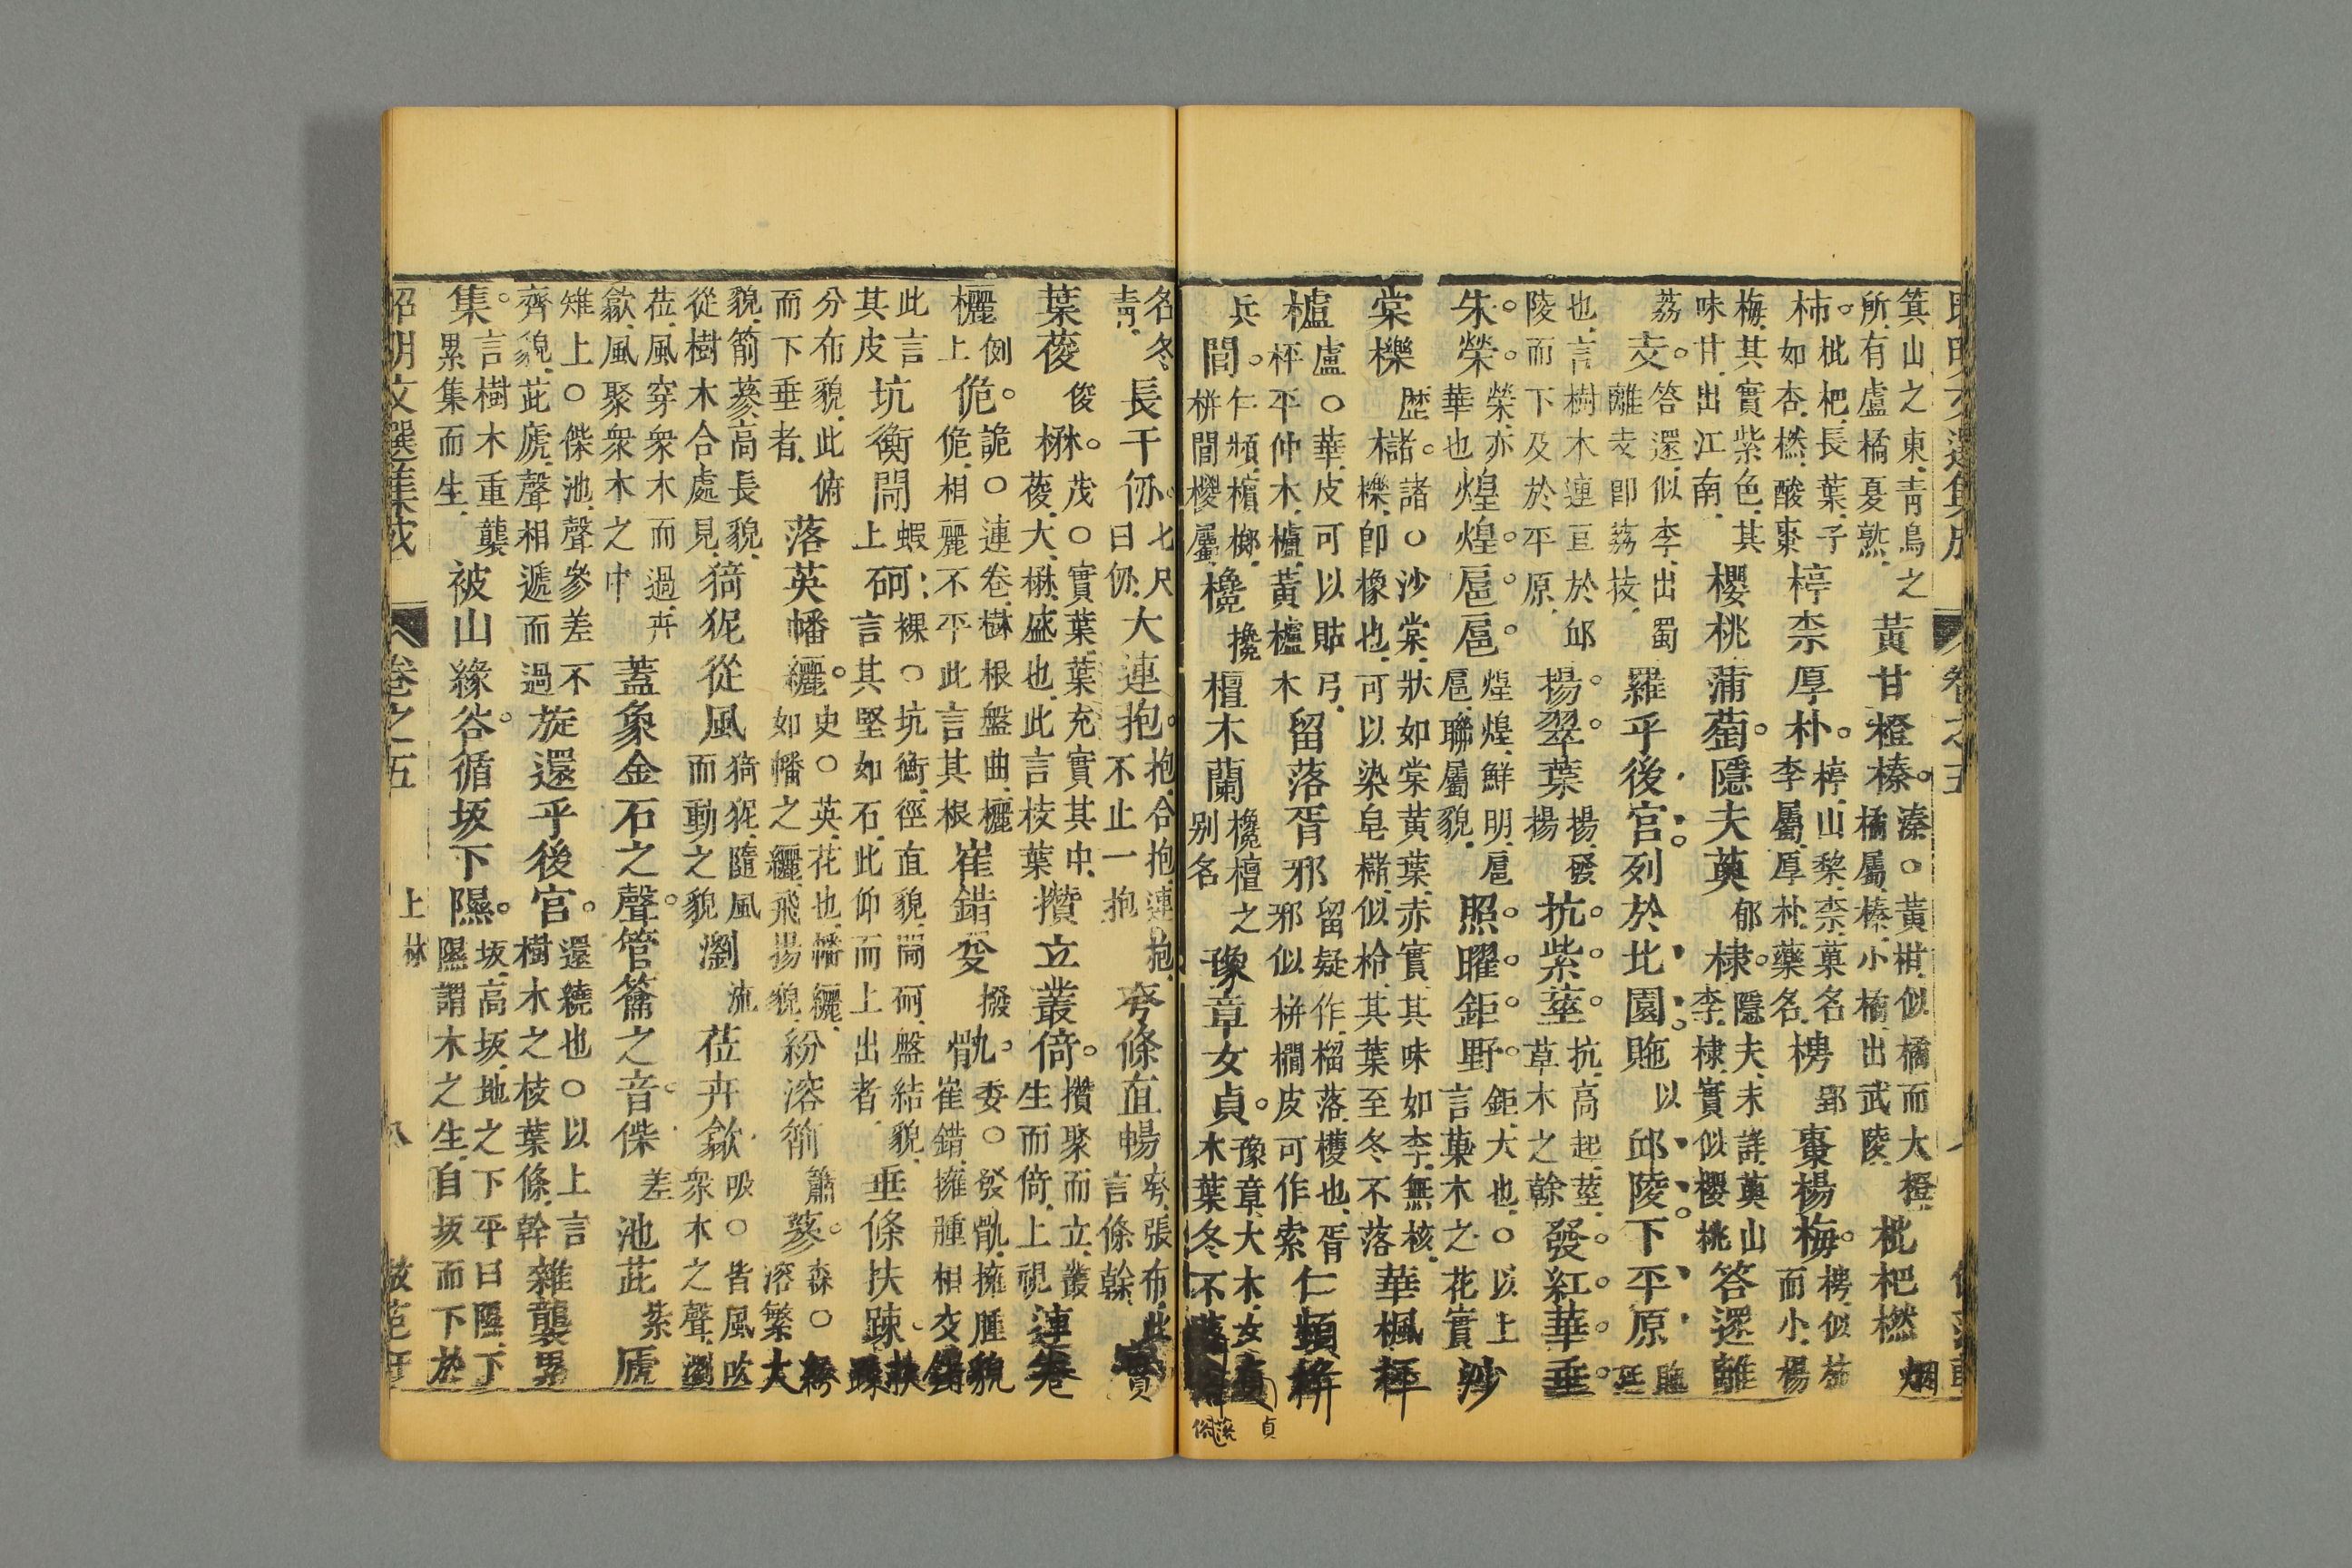 箕山之東青鳥之所有盧橘夏熟黃甘橙楱。湊○黃柑似橘而大橙橘屬楱小橘出武陵枇杷橪烟
柿。枇杷長葉子如杏橪酸棗楟柰厚朴。楟山黎柰菓名李屬厚朴藥名梬郢棗楊梅。梬似柿而小楊
梅其實紫色其味甘出江南櫻桃蒲萄。隱夫薁郁棣。隱夫未詳薁山李棣實似櫻桃答遝離
荔支。答遝似李出蜀離支卽荔技羅乎後宮。列於北園。貤以邱陵。下平原貤延
也言樹木連亘於邱陵而下及於平原揚。翠。葉揚發揚抗。紫。莖。抗高起莖草木之幹發。紅。華。垂。
朱。榮。榮亦華也煌煌。扈。扈。煌煌鮮明扈扈聯屬貌照。曜。鉅。野。鉅大也○以上言菓木之花實沙
棠櫟歷櫧。諸○沙棠狀如棠黃葉赤實其味如李無核櫟卽橡也可以染皂櫧似枔其葉至冬不落華楓枰
櫨盧○華皮可以貼弓枰平仲木櫨黃櫨木留落胥邪留疑作榴落檴也胥邪似栟櫚皮可作索仁頻栟
兵閭。仁頻檳榔栟閭椶屬欃攙檀木蘭欃檀之別名豫章女貞。豫章大木女貞木葉冬不落
貞
落俗
名冬青長千仞。七尺曰仞大連抱。抱合抱連抱不止一抱夸條直暢夸張布此言條幹實
葉葰俊楙。茂○實葉葉充實其中葰大楙盛也此言枝葉攢立叢倚。攢聚而立叢生而倚上視連卷
欐例上佹。詭○連卷樹根盤曲欐佹相麗不平此言其根崔錯癹撥骫。委○發骫擁腫貌崔錯擁腫相交錯
此言其皮坑衡閜蝦上砢裸○坑衡徑直貌閜砢盤結貌言其堅如石此仰而上出者垂條扶疎扶疎
分布貌此俯而下垂者落英幡纚。史○英花也幡纚如幡之纚飛揚貌紛溶箾簫蔘。森○紛溶繁大
貌箾蔘高長貌從樹木合處見猗狔從風猗狔隨風而動之貌瀏流莅卉歙吸○皆風吹衆木之聲瀏
莅風穿衆木而過卉歙風聚衆木之中蓋象金石之聲。管籥之音。傑差池茈紫虒
雉上○傑池聲參差不齊貌茈虒聲相遞而過旋還乎後宮。還繞也○以上言樹木之枝葉條幹雜襲累
集。言樹木重襲累集而生被山緣谷。循坂下隰。坂高坂地之下平曰隰下隰謂木之生自坂而下於
昭明文選集成 卷之五 上林 八